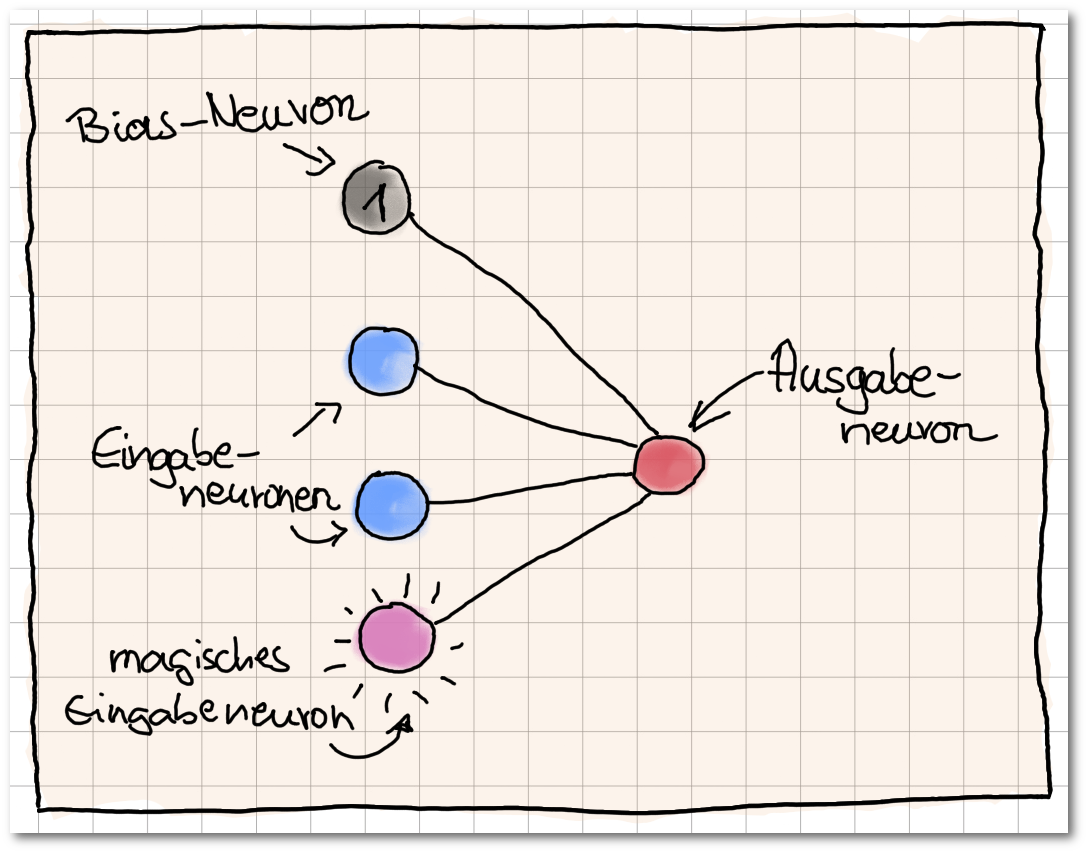 Bias-Neuron
1
Ausgabe-
neuron
Eingabe-
neuronen
magisches
Eingabeneuron